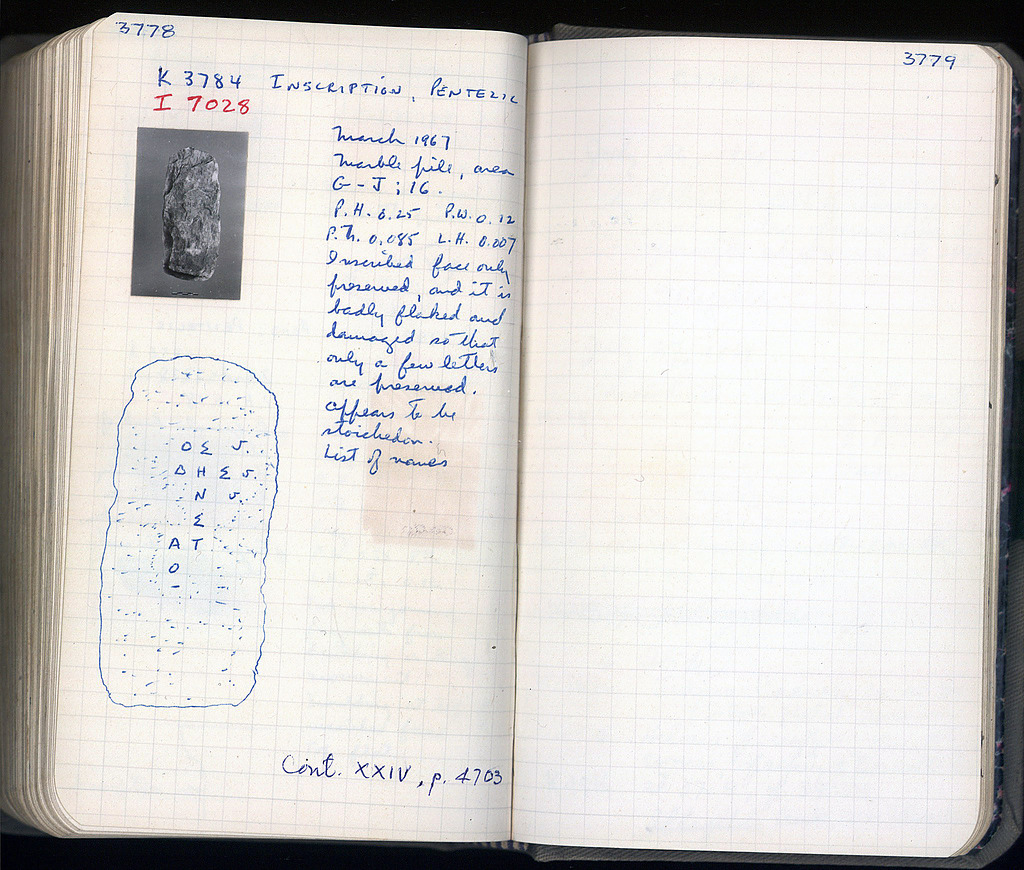 3778
K 3784 INSCRIPTION, PENTELIC
I 7028
March 1967
Marble pile, area
G-J ; 16.
P.H. 0.25 P.W. 0.12
P.Th. 0.085 L.H. 0.007
Inscribed face only
preserved, and it is
badly flaked and
damaged so that
only a few letters
are preserved.
Appears to be
stoichedon.
List of names
Ο Σ v.
Δ Η Σ v.
Ν v.
Σ
Α Τ
Ο
Cont. XXIV, p. 4703
3779